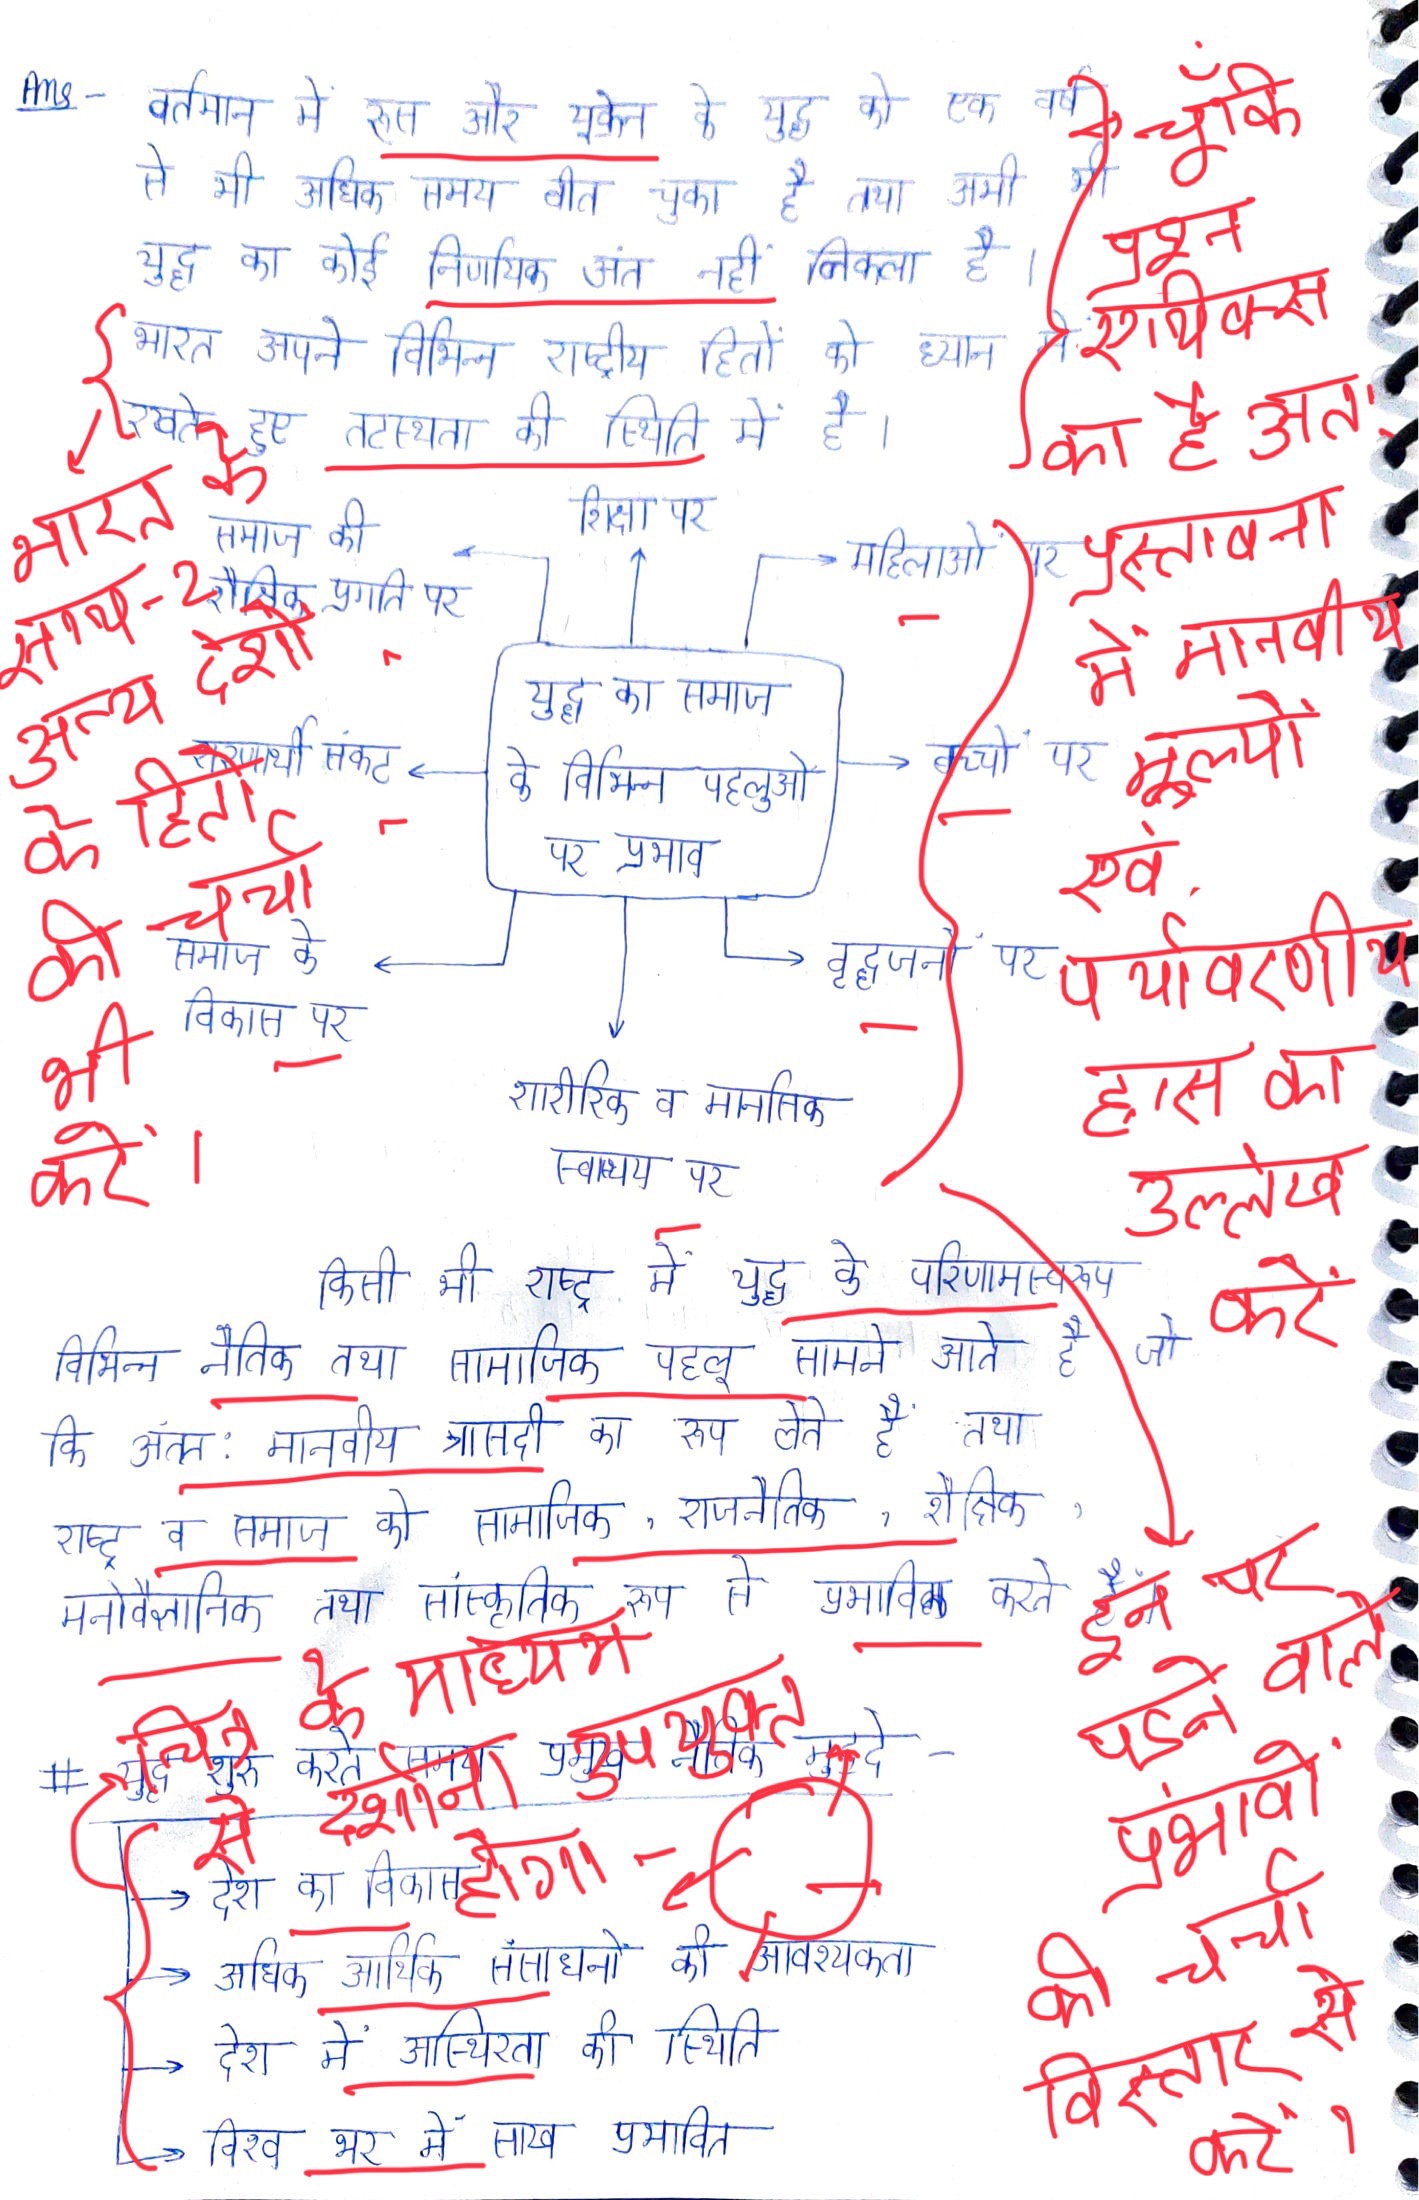 Ans - वर्तमान में रूस और यूक्रेन के युद्ध को एक वर्ष
से भी अधिक समय बीत चुका है तथा अभी भी
युद्ध का कोई निर्णायक अंत नहीं निकला है।
भारत अपने विभिन्न राष्ट्रीय हितों को ध्यान में
रखते हुए तटस्थता की स्थिति में है।
चूँकि
प्रश्न
एथिक्स
का है अतः
प्रस्तावना
में मानवीय
मूल्यों
एवं
पर्यावरणीय
ह्रास का
उल्लेख
करें
भारत के
साथ-2
अन्य देशों
के हितों
की चर्चा
भी
करें।
शिक्षा पर
समाज की
शैक्षिक प्रगति पर
महिलाओं पर
युद्ध का समाज
के विभिन्न पहलुओं
पर प्रभाव
शरणार्थी संकट
बच्चों पर
समाज के
विकास पर
वृद्धजनों पर
शारीरिक व मानसिक
स्वाथ्य पर
किसी भी राष्ट्र में युद्ध के परिणामस्वरूप
विभिन्न नैतिक तथा सामाजिक पहलू सामने आते है जो
कि अंतत: मानवीय त्रासदी का रूप लेते हैं तथा
राष्ट्र व समाज को सामाजिक, राजनैतिक, शैक्षिक,
मनोवैज्ञानिक तथा सांस्कृतिक रूप से प्रभावित करते हैं
इन पर
पडने वाले
प्रभावों
की चर्चा
विस्तार से
करें।
चित्र के माध्यम
से दर्शाना उपयुक्त
होगा -
# युद्ध शुरू करते समय प्रमुख नैतिक मुद्दे -
→ देश का विकास
→ अधिक आर्थिक संसाधनों की आवश्यकता
→ देश में अस्थिरता की स्थिति
→ विश्व भर में साख प्रभावित